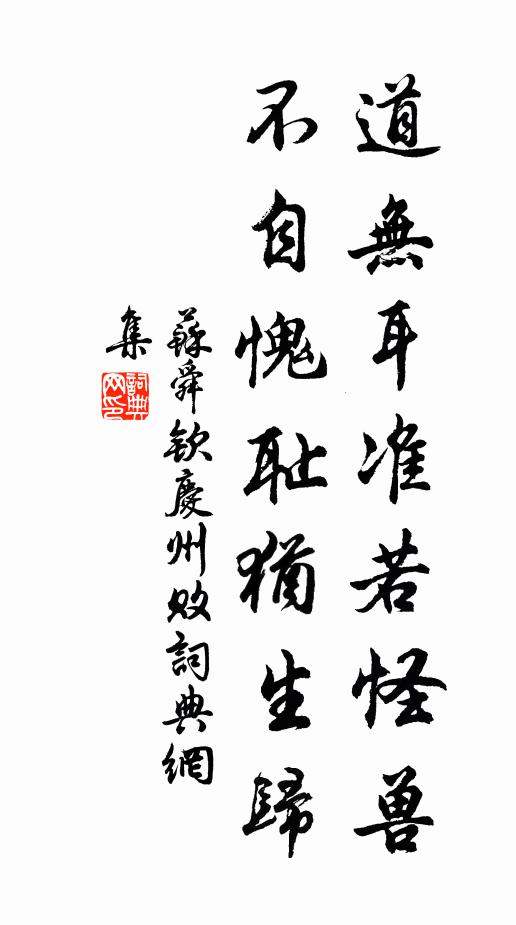 道無耳准若怪兽
不自愧耻猶生歸
蘇舜欽慶州敗詞典網
集
詞典
网印